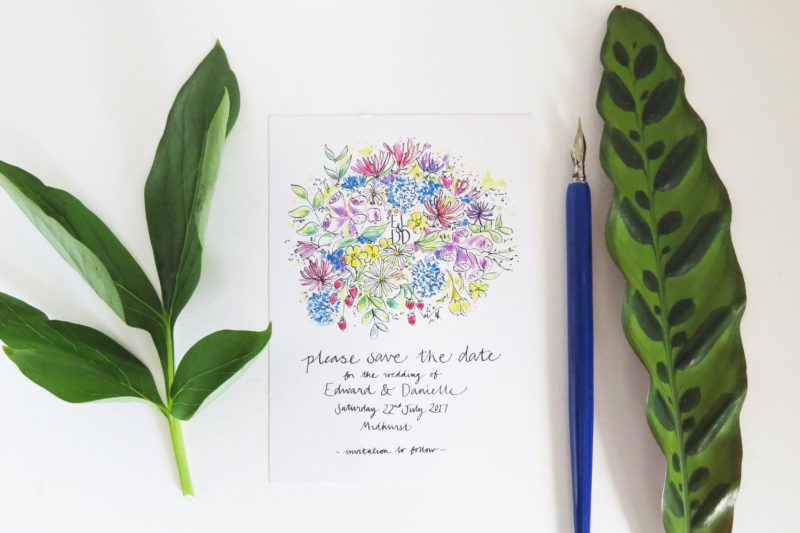 please save the date
for the wedding of
Edward & Danielle
Saturday 22nd July 2017
Midhurst
- invitation to follow -